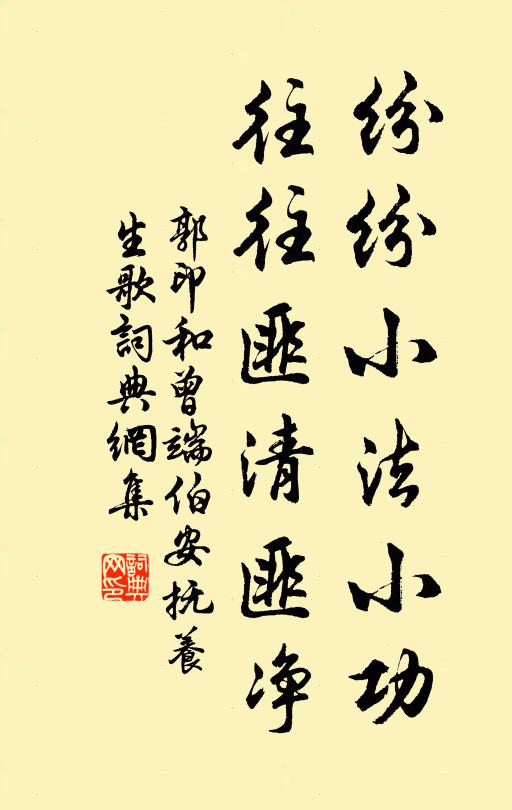 纷纷小法小功
往往匪清匪净
郭印和曾端伯安抚养
生歌詞典網集
詞典
网印